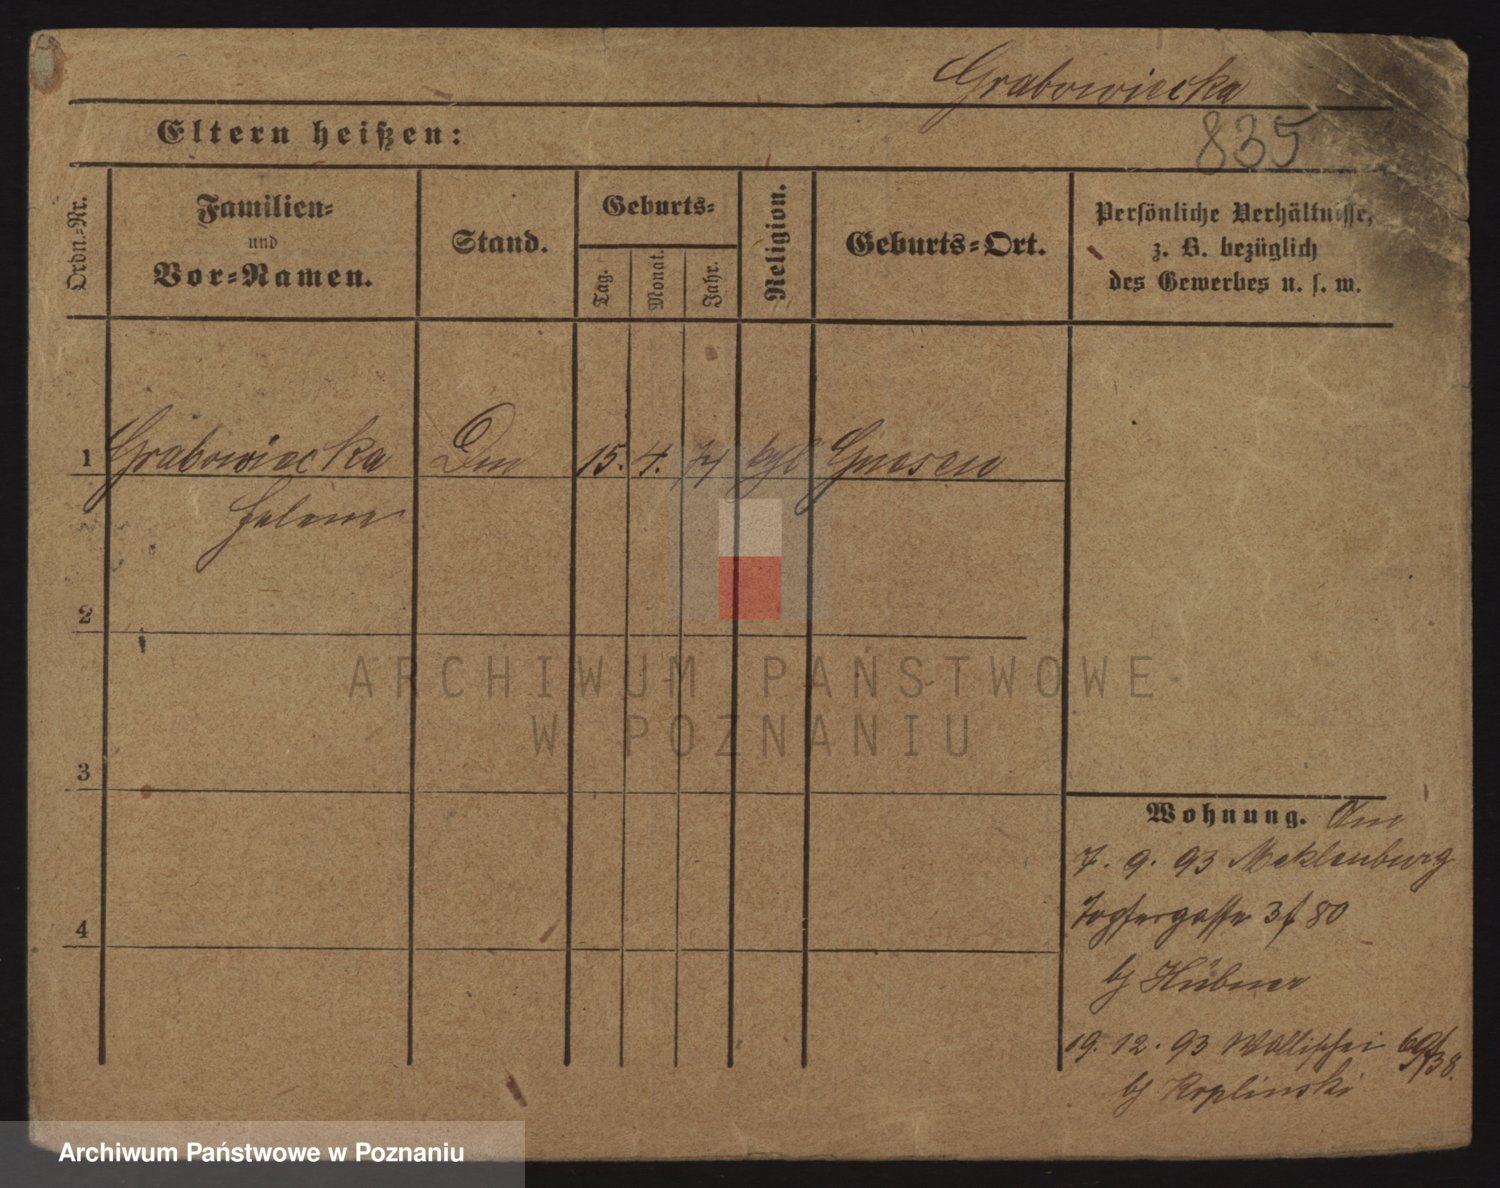 Grabowiecka
835
Eltern heißen:
Ordn.-Nr.
Familien-
und
Vor-Namen.
Stand.
Geburts-
Tag.
Monat.
Jahr.
Religion.
Geburts-Ort.
Persönliche Verhältnisse,
z. B. bezüglich
des Gewerbes u. s. w.
1 Grabowiecka 15. 4. 74 Gnesen
Helene
2
3
4
Wohnung.
7. 9. 93 Meklenburg
Topfergasse 3/80
bj Hübner
19. 12. 93 Wallischei
bj Koplinski
ARCHIWUM PAŃSTWOWE
W POZNANIU
Archiwum Państwowe w Poznaniu